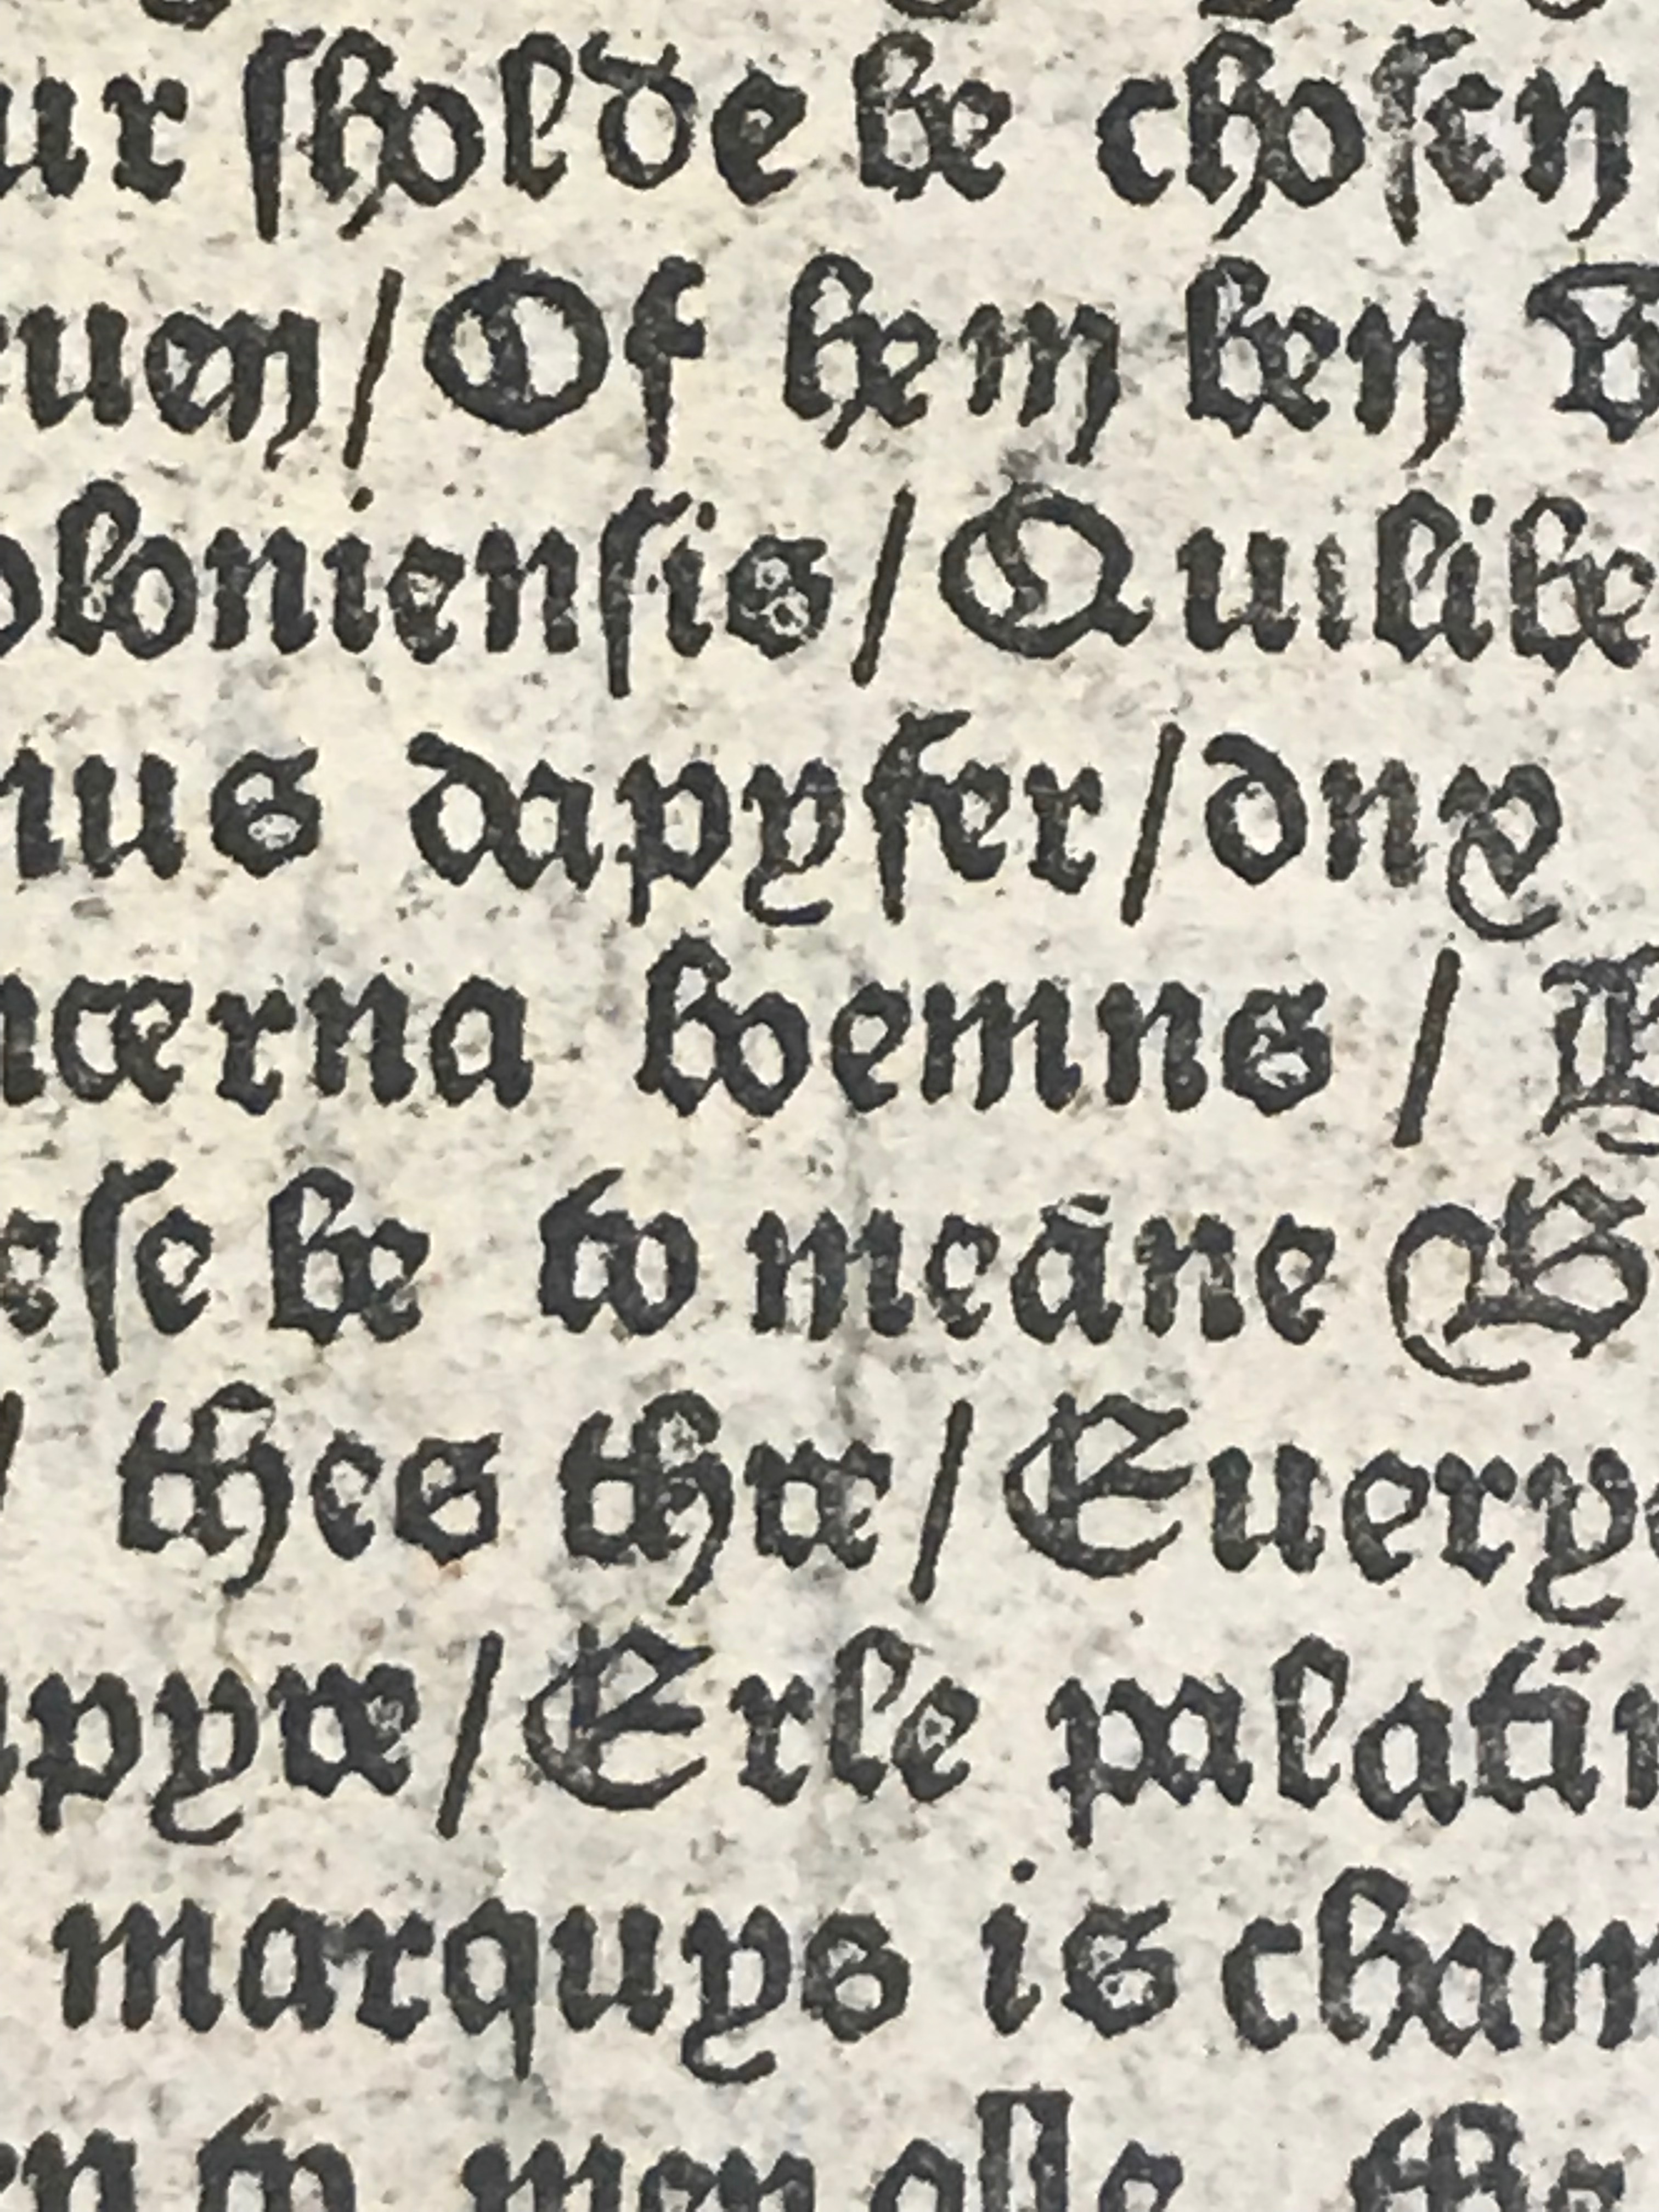 ur ſholde be choſen
uen/Of hem ben
oloniensis/Quilibe
ius dapyfer/dnꝰ
ncerna boemns /
eſe be to meāne
/ thes thre/Euery
pyre/Erle palati
marquys is cham
en to men alle